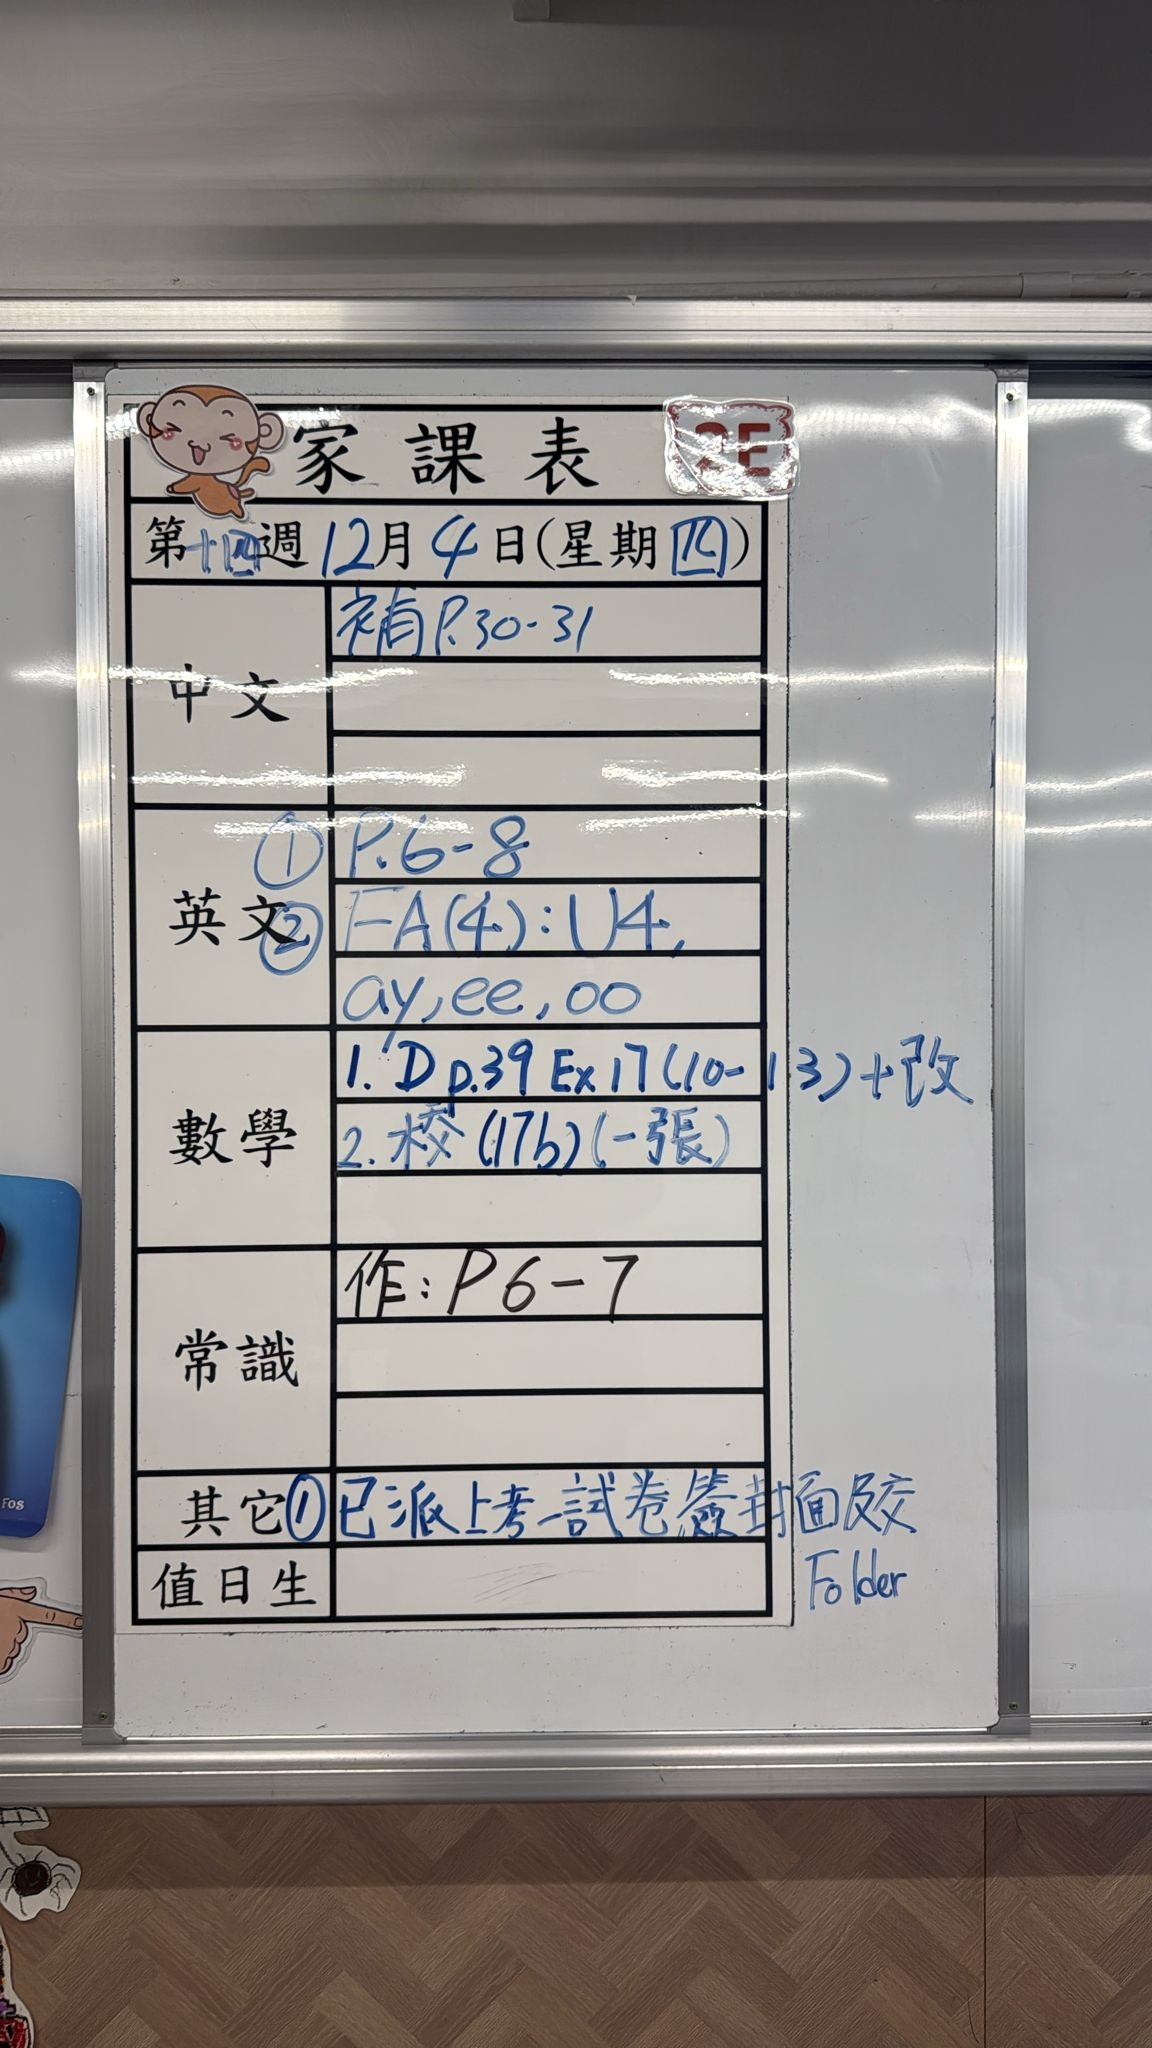 家課表 2E
第十四週 12月4日(星期四)
中文
補P.30-31
英文
① P.6-8
② FA(4):U4,
ay,ee,oo
數學
1. D p.39 Ex17(10-13)+改
2. 校(17b)(一張)
常識
作:P6-7
其它
① 已派上考一試卷簽封面及交
Folder
值日生
Fos